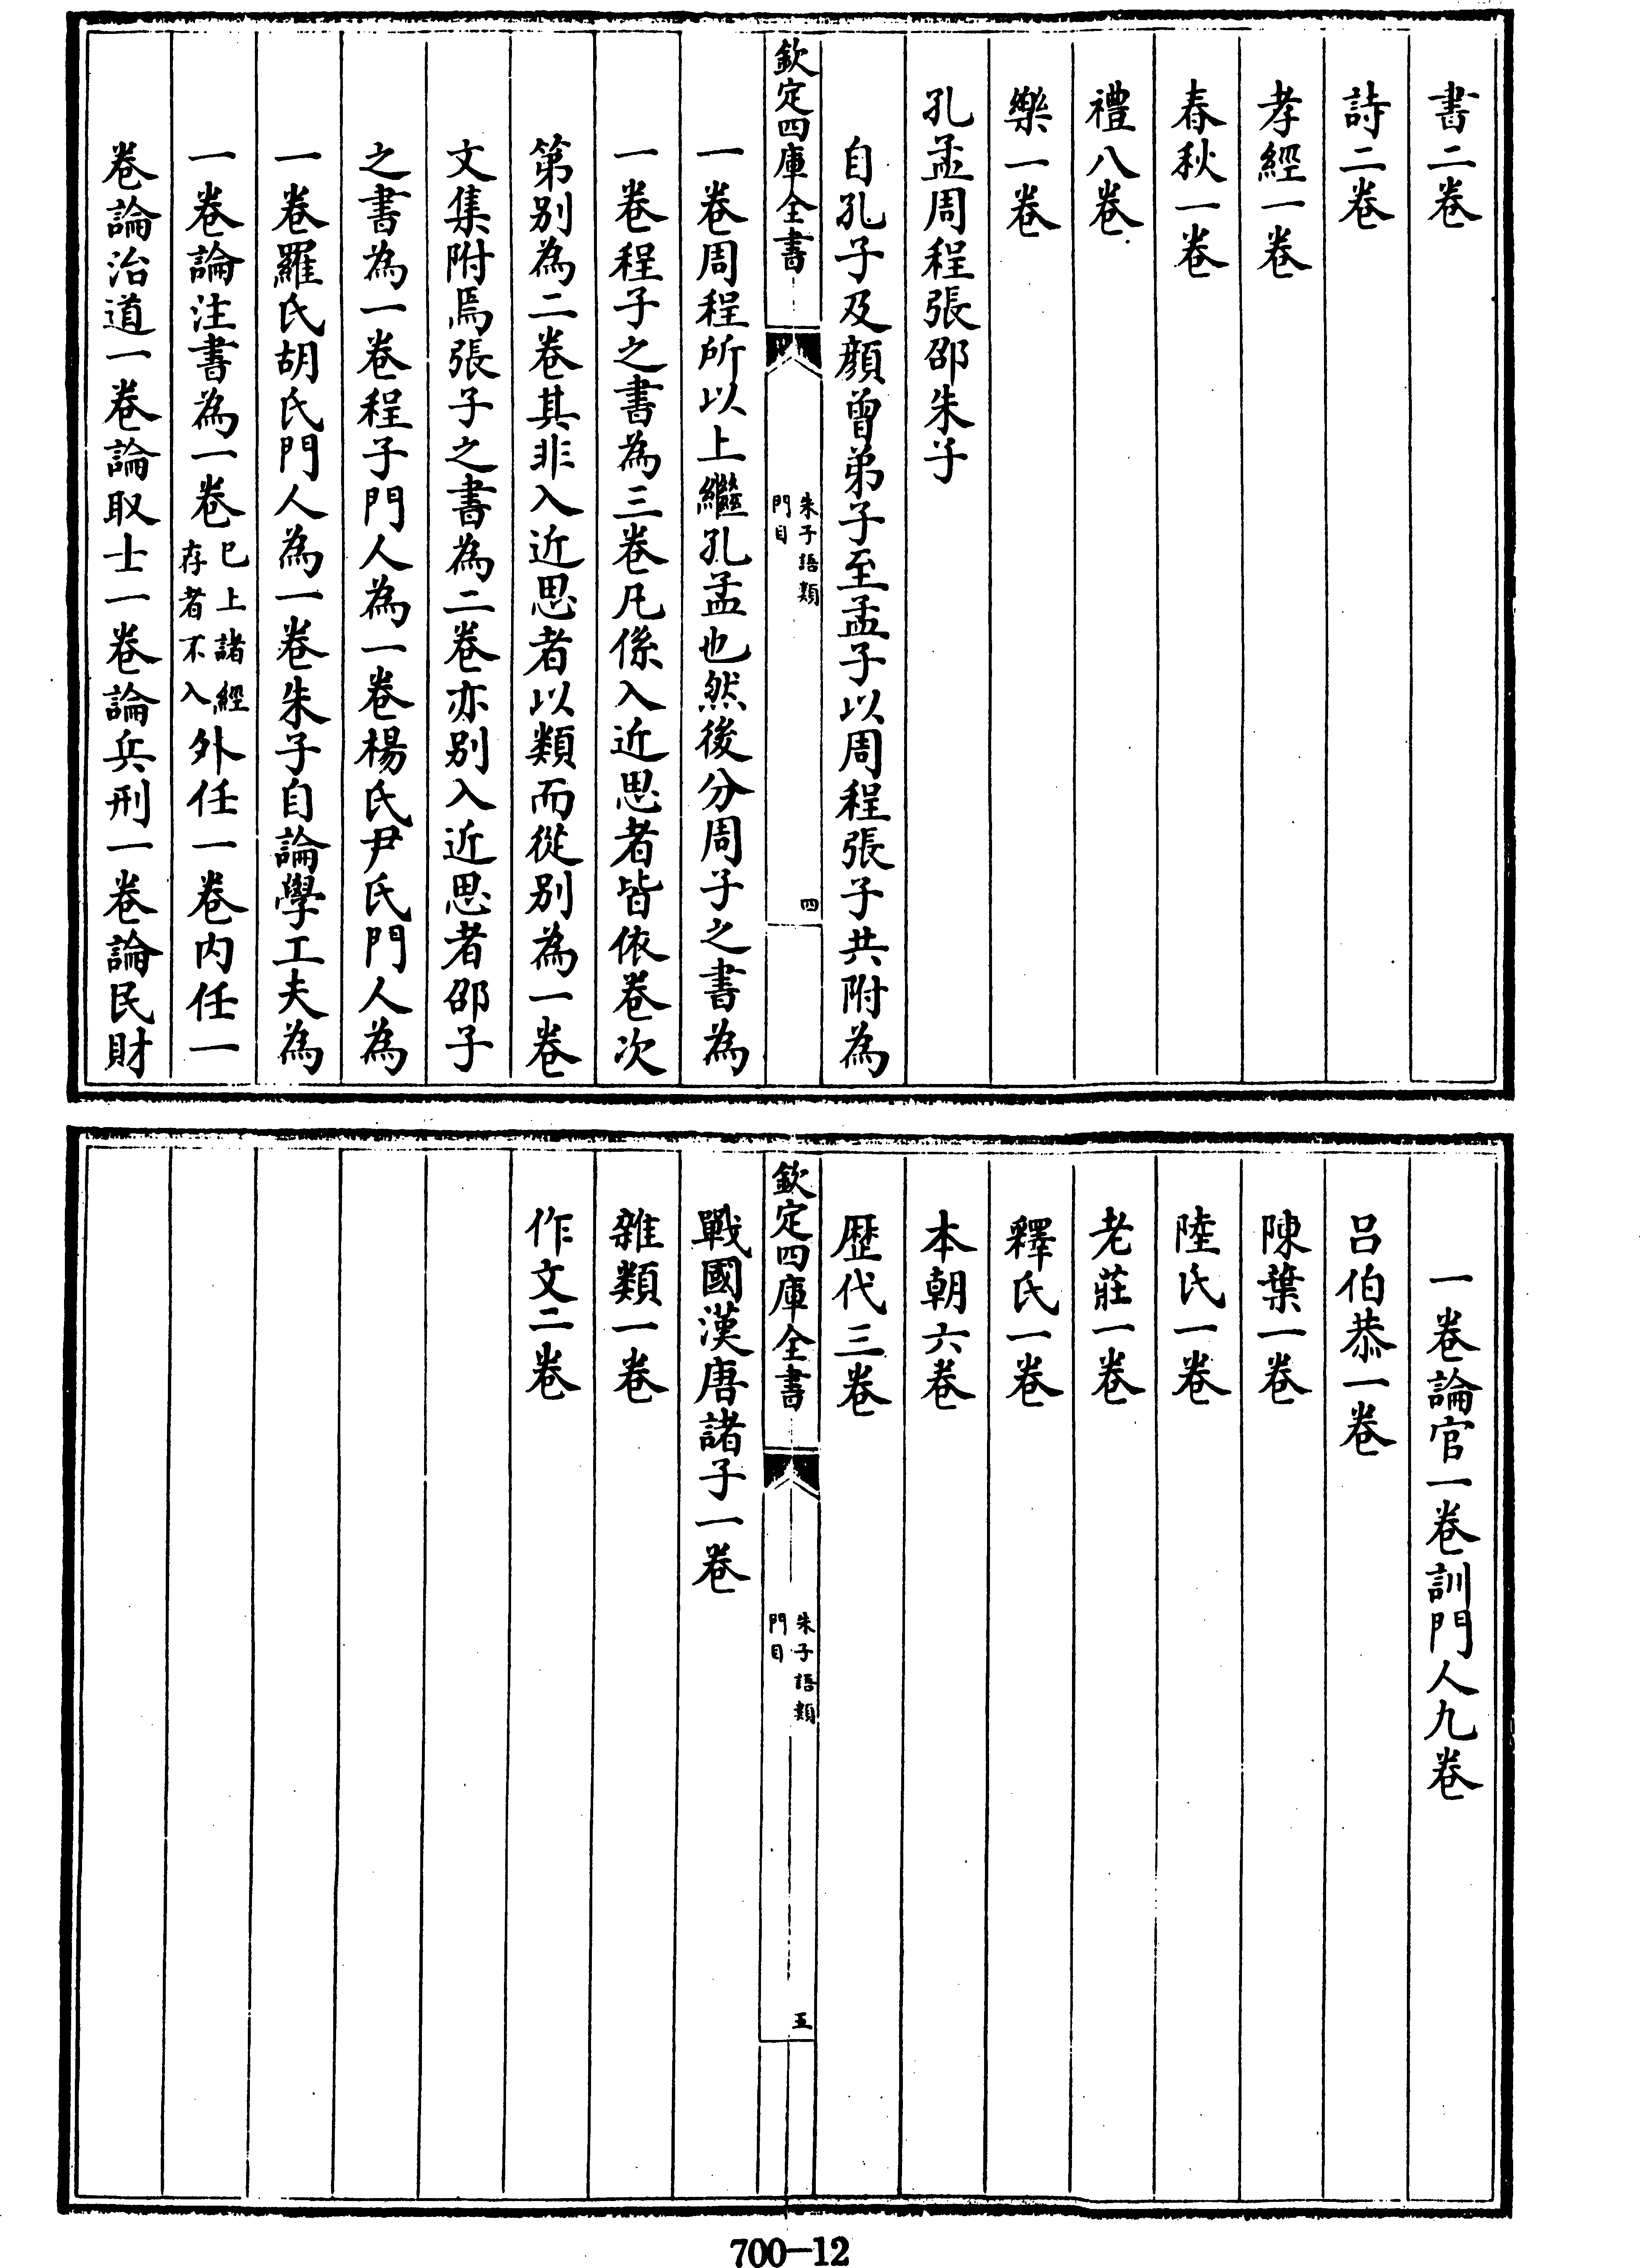 書二卷
詩二卷
孝經一卷
春秋一卷
禮八卷
樂一卷
孔孟周程張邵朱子
自孔子及顔曾弟子至孟子以周程張子共附為
欽定四庫全書
朱子語類
門目
四
一卷周程所以上繼孔孟也然後分周子之書為
一卷程子之書為三卷凡係入近思者皆依卷次
第别為二卷其非入近思者以類而從别為一卷
文集附焉張子之書為二卷亦别入近思者邵子
之書為一卷程子門人為一卷楊氏尹氏門人為
一卷羅氏胡氏門人為一卷朱子自論學工夫為
一卷論注書為一卷
已上諸經
存者不入
外任一卷内任一
卷論治道一卷論取士一卷論兵刑一卷論民財
一卷論官一卷訓門人九卷
吕伯恭一卷
陳葉一卷
陸氏一卷
老莊一卷
釋氏一卷
本朝六卷
歴代三卷
欽定四庫全書
朱子語類
門目
五
戰國漢唐諸子一卷
雜類一卷
作文二卷
700-12